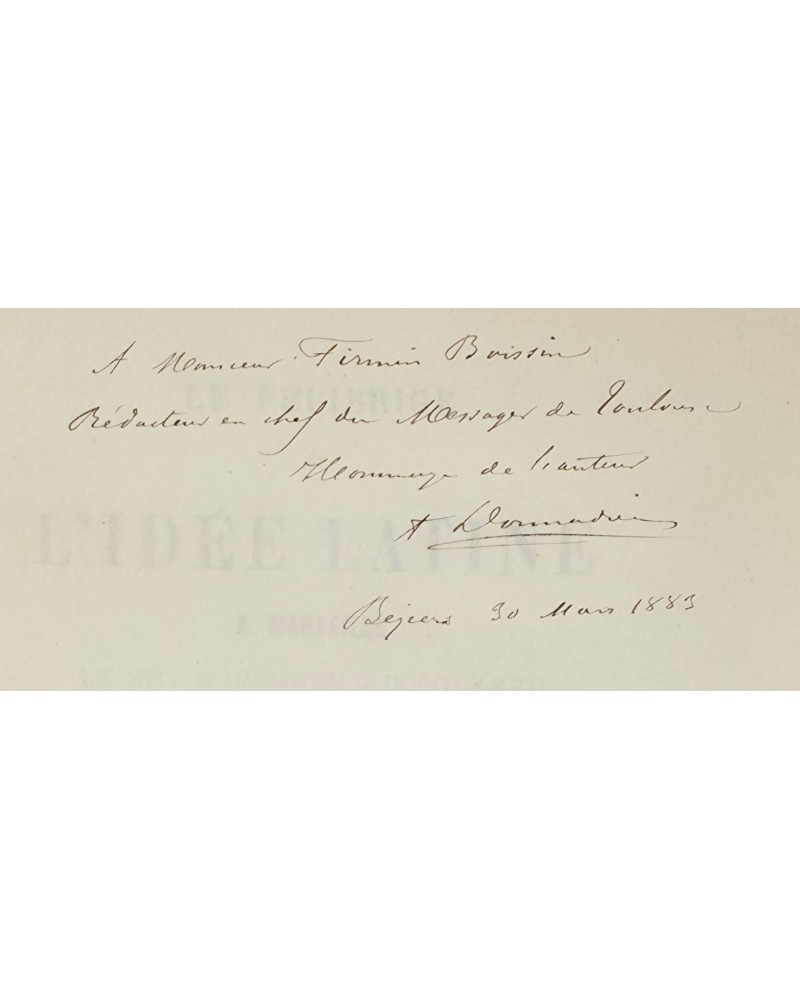 A Monsieur Firmin Boissin
Rédacteur en chef du Messager de Toulouse
Hommage de l'auteur
A Donnadieu
Béziers 30 Mars 1883
L'IDÉE LATINE